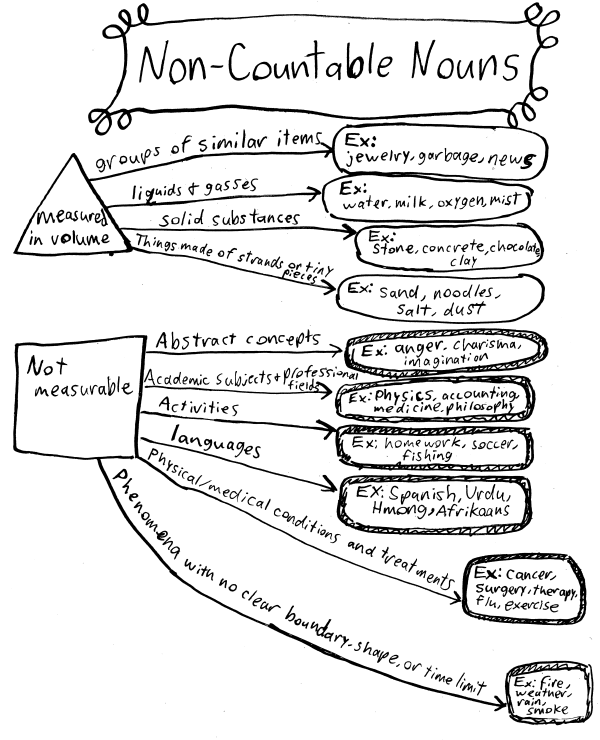 Non-Countable Nouns
measured
in volume
groups of similar items
Ex:
jewelry, garbage, news
liquids + gasses
Ex:
water, milk, oxygen, mist
solid substances
Ex:
stone, concrete, chocolate,
clay
Things made of strands or tiny
pieces
Ex: sand, noodles,
salt, dust
Not
measurable
Abstract concepts
Ex: anger, charisma,
imagination
Academic subjects + professional
fields
Ex: Physics, accounting,
medicine, philosophy
Activities
Ex: homework, soccer,
fishing
languages
EX: Spanish, Urdu,
Hmong, Afrikaans
Physical/medical conditions and treatments
Ex: cancer,
surgery, therapy,
flu, exercise
Phenomena with no clear boundary, shape, or time limit
Ex: fire,
weather,
rain,
smoke